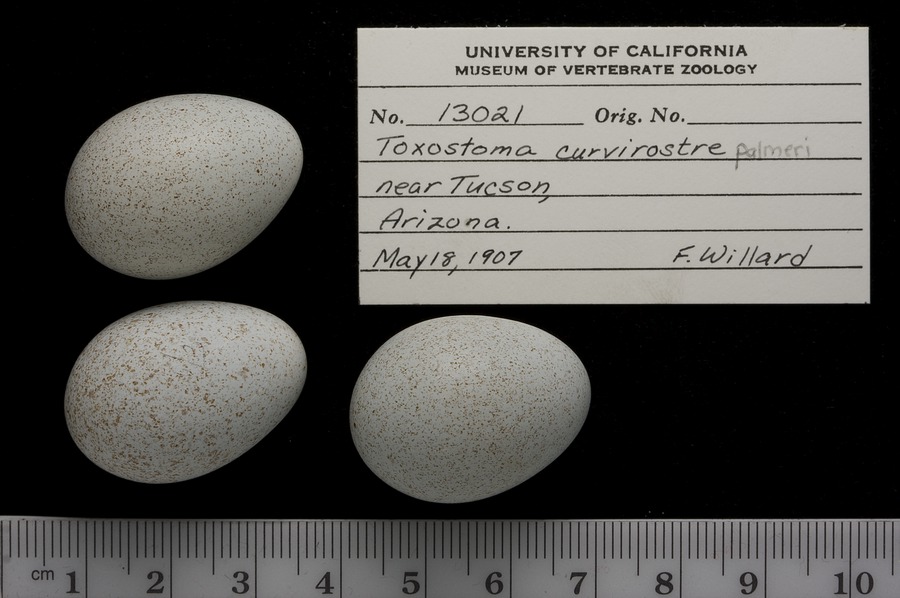 UNIVERSITY OF CALIFORNIA
MUSEUM OF VERTEBRATE ZOOLOGY
No. 13021 Orig. No.
Toxostoma curvirostre palmeri
near Tucson,
Arizona.
May 18, 1907 F. Willard
cm 1 2 3 4 5 6 7 8 9 10